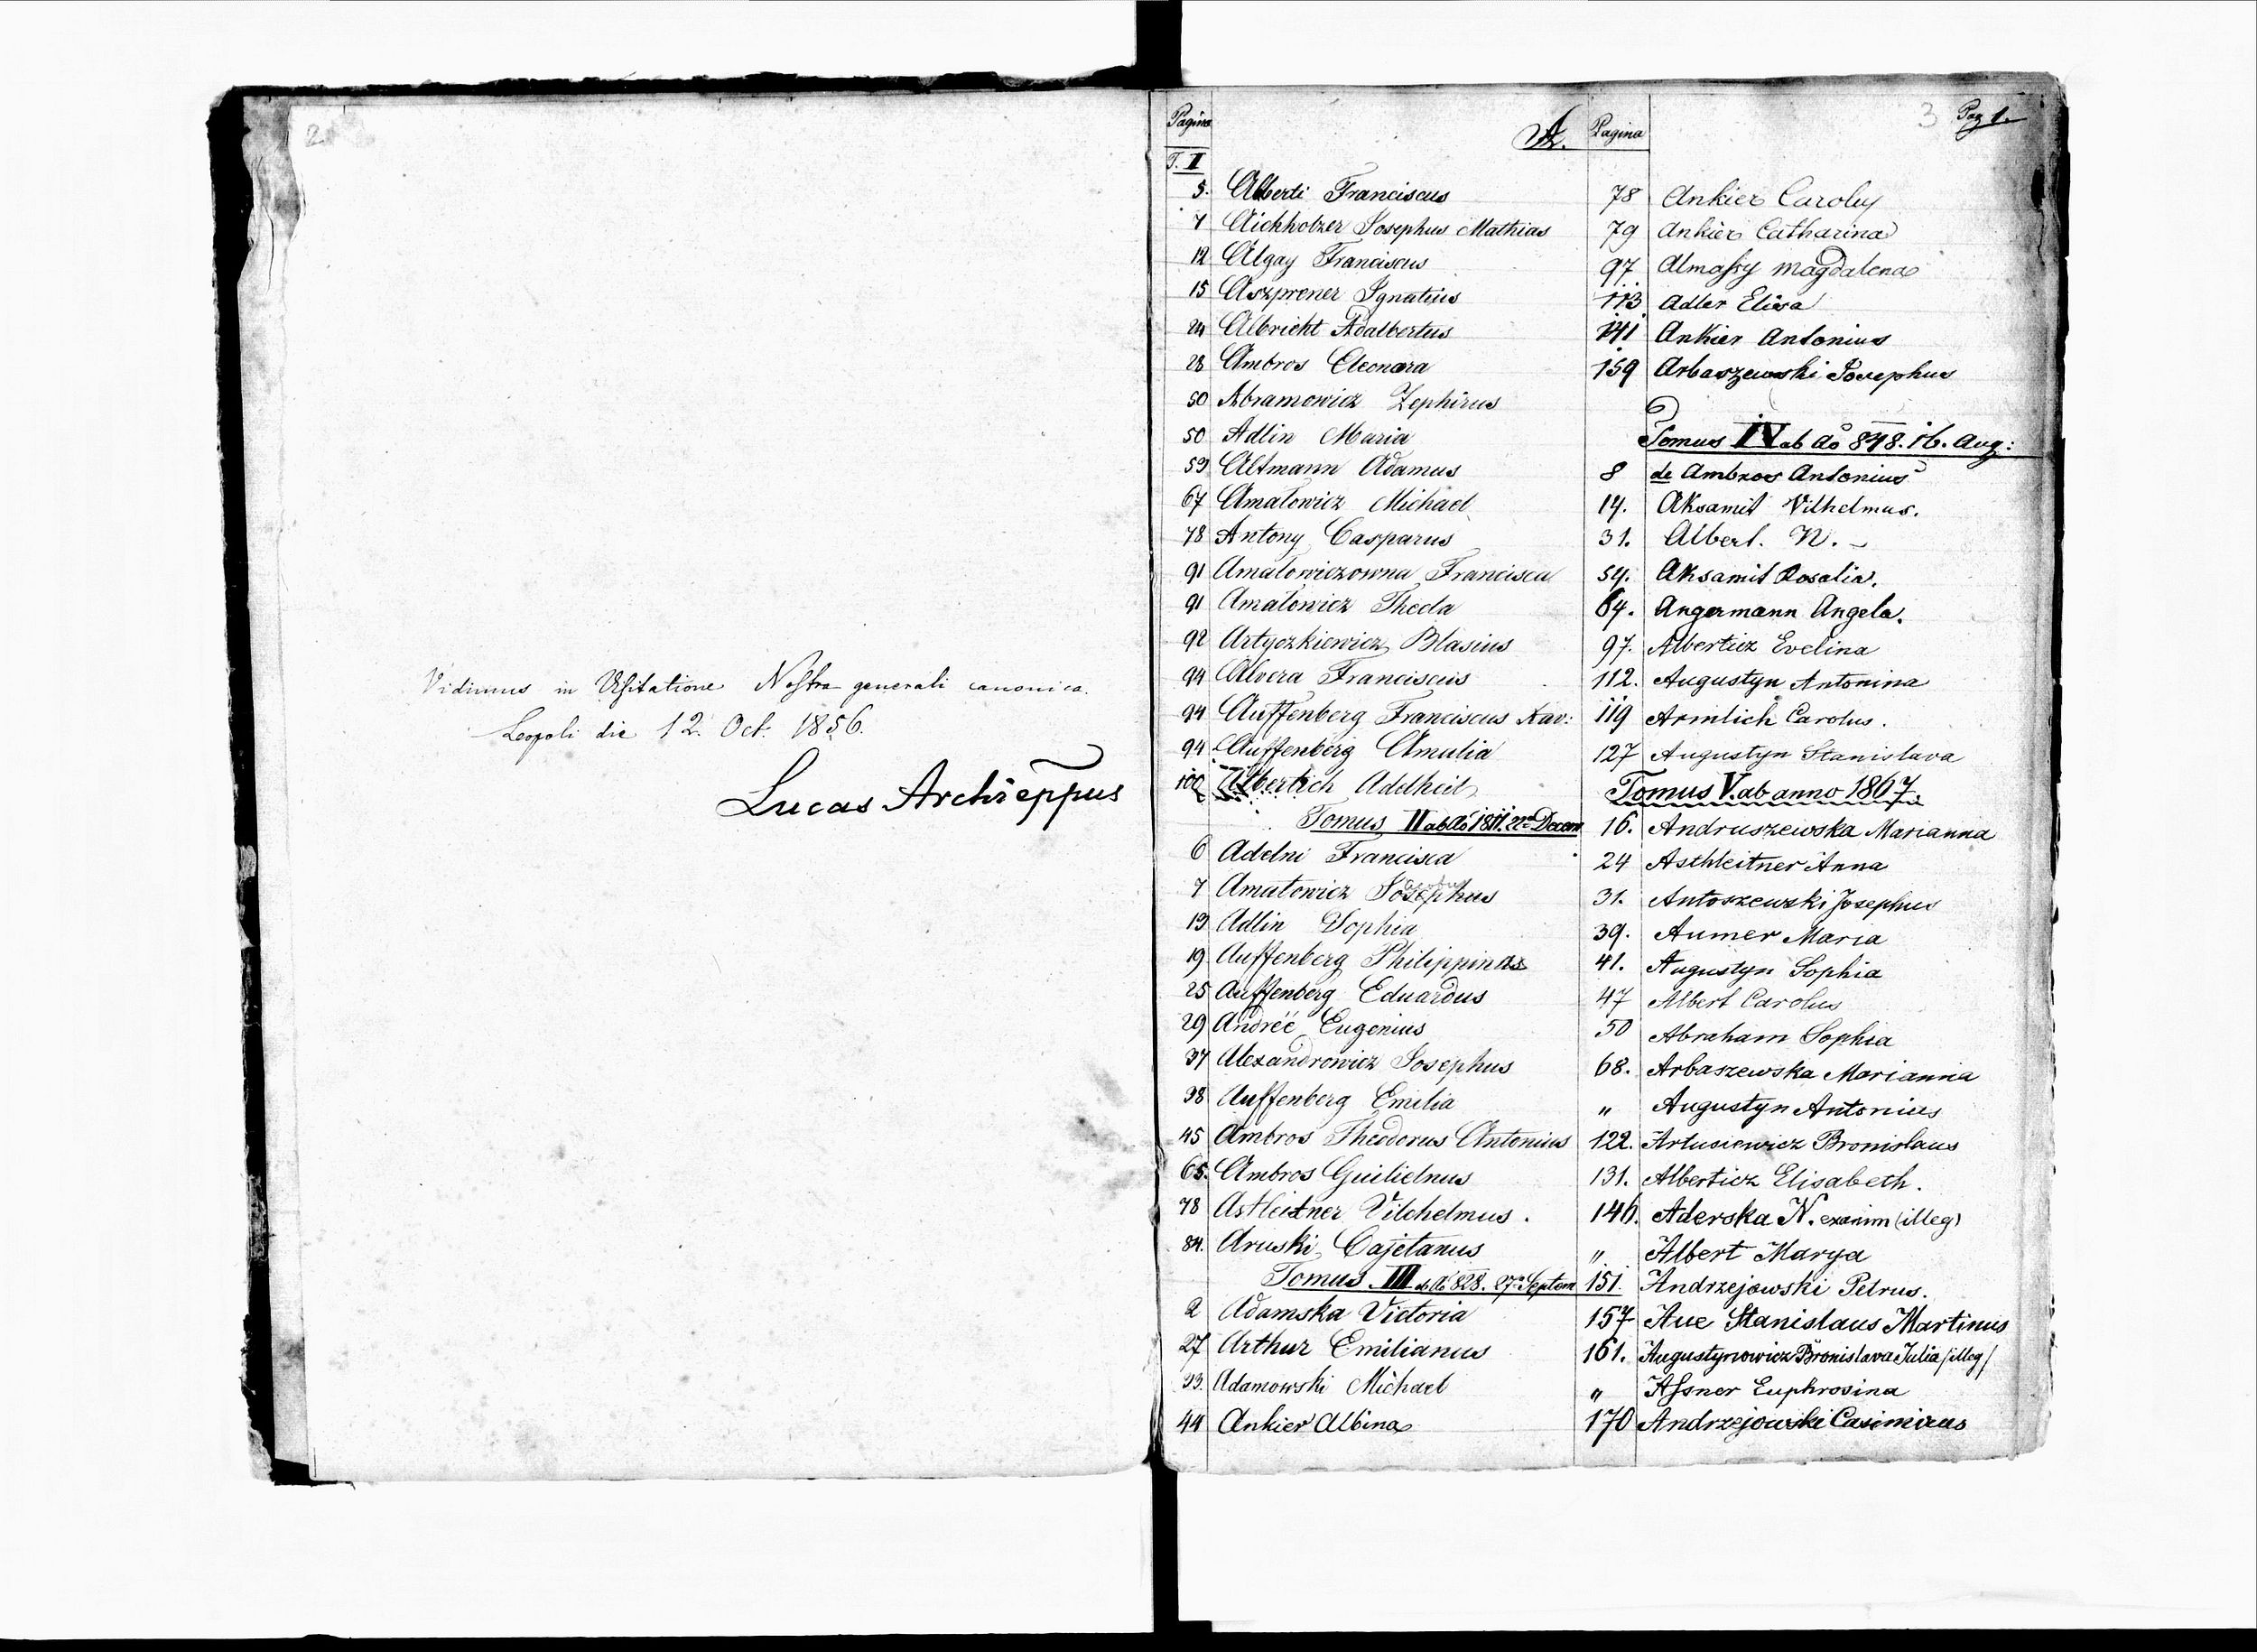 2
Vidimus in Visitatione Nostra generali canonica.
Leopoli die 12. Oct. 1856.
Lucas Archieppus
3 Pag 1.
Pagina A. Pagina
T. I
5. Alberti Franciscus
7 Aichholzer Josephus Mathias
12 Algay Franciscus
15 Aszprener Ignatius
24 Albricht Adalbertus
28 Ambros Eleonara
50 Abramowicz Zephirus
50 Adlin Maria
59 Altmann Adamus
67 Amatowicz Michael
78 Antony Casparus
91 Amatowiczowna Francisca
91 Amatowicz Thecla
92 Artyczkiewicz Blasius
94 Alvera Franciscus
94 Auffenberg Franciscus Xav:
94 Auffenberg Amalia
100 Alberlich Adelheid
Tomus II ab Ao 1811. 22a Decem
6 Adelni Francisca
7 Amatowicz Josephus
19 Adlin Sophia
19 Auffenberg Philippina
25 Auffenberg Eduardus
29 Andréé Eugenius
37 Alexandrowicz Josephus
38 Auffenberg Emilia
45 Ambros Theodorus Antonius
65. Ambros Guilielmus
78 Astleitner Vilchelmus.
84. Aruski Cajetanus
Tomus III ab Ao 828. 27a Septem
2 Adamska Victoria
27 Arthur Emilianus
33. Adamowski Michael
44 Ankier Albina
78 Ankier Caroly
79 Ankier Catharina
97 Almassy Magdalena
113 Adler Elisa
141 Ankier Antonius
159 Arbaszewski Josephus
Tomus IV ab Ao 848. 16. Aug:
8 de Ambros Antonius
14. Aksamit Vilhelmus.
31. Albert. N. -
54. Aksamit Rosalia.
64. Angermann Angela.
97. Alberticz Evelina
112. Augustyn Antonina
119 Armlich Carolus.
127 Augustyn Stanislava
Tomus V. ab anno 1867.
16. Andruszewska Marianna
24 Asthleitner Anna
31. Antoszewski Josephus
39. Aumer Maria
41. Augustyn Sophia
47 Albert Carolus
50 Abraham Sophia
68. Arbaszewska Marianna
" Augustyn Antonius
122. Artusiewicz Bronislaus
131. Alberticz Elisabeth.
146. Aderska N. exanim (illeg)
" Albert Marya
151. Andrzejowski Petrus.
157 Aue Stanislaus Martinus
161. Augustynowicz Bronislava Julia /illeg/
" Assner Euphrosina
170 Andrzejowski Casimirus